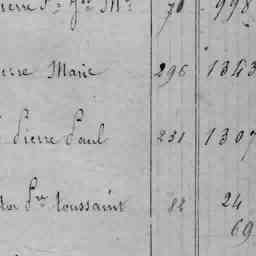 Pierre J.n M. 70 998
Pierre Marie 296 1343
Pierre Paul 231 1307
Toussaint 82 24
69